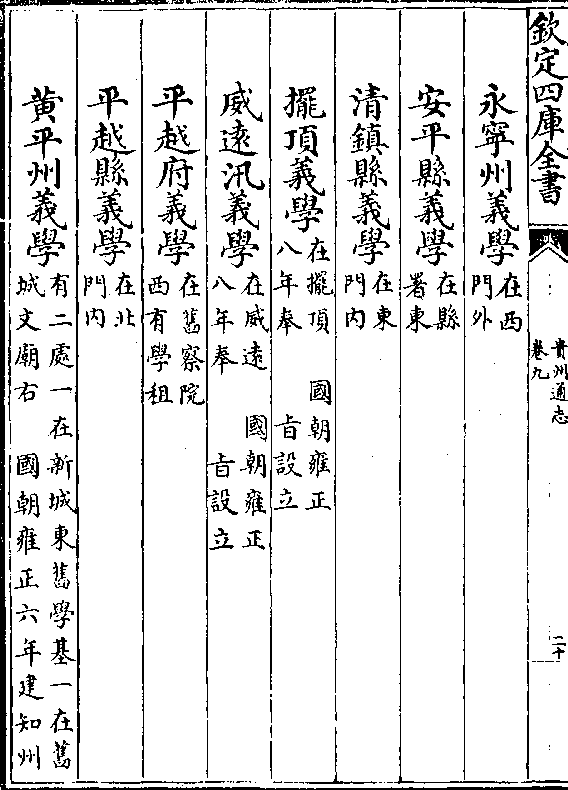 欽定四庫全書
貴州通志
卷九
二十
永寧州義學
在西
門外
安平縣義學
在縣
署東
清鎮縣義學
在東
門內
擺頂義學
在擺頂 國朝雍正
八年奉 旨設立
威遠汛義學
在威遠 國朝雍正
八年奉 旨設立
平越府義學
在舊察院
西有學租
平越縣義學
在北
門內
黃平州義學
有二處一在新城東舊學基一在舊
城文廟右 國朝雍正六年建知州